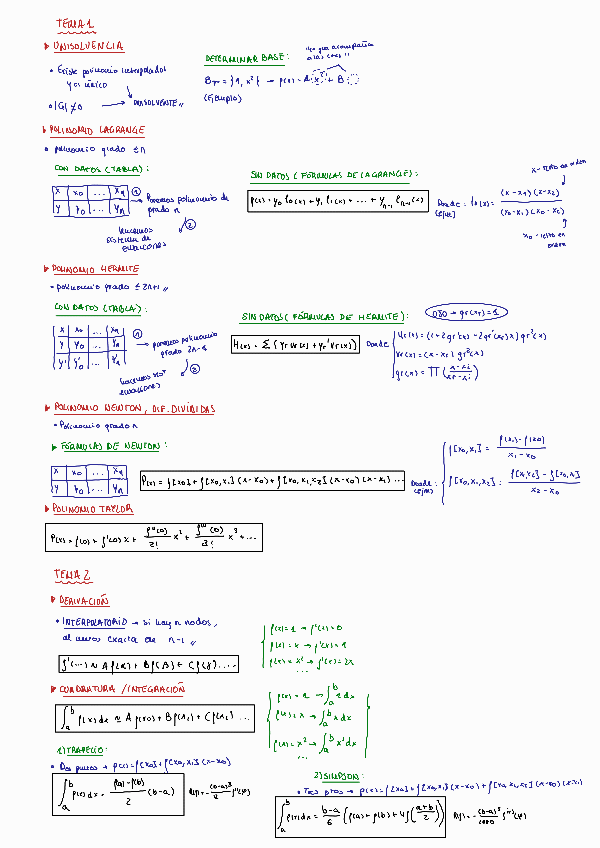 TEMA 1
► UNISOLVENCIA
• Existe polinomio interpolador y es único
• |G| ≠ 0 → UNISOLVENTE //
DETERMINAR BASE:
"lo que acompaña a las ctes"
B_T = {1, x²} → p(x) = A x + B
(Ejemplo)
► POLINOMIO LAGRANGE
• polinomio grado ≤ n
CON DATOS (TABLA):
x x₀ ... xₙ
y y₀ ... yₙ
① Ponemos polinomio de grado n
② hacemos sistema de ecuaciones
SIN DATOS (FÓRMULAS DE LAGRANGE):
p(x) = y₀ l₀(x) + y₁ l₁(x) + ... + yₙ₋₁ lₙ₋₁(x)
Donde: [ejm] l₀(x) = (x-x₁)(x-x₂) / (x₀-x₁)(x₀-x₂)
x - resto en orden
x₀ - resto en orden
► POLINOMIO HERMITE
• polinomio grado ≤ 2n+1 //
CON DATOS (TABLA):
x x₀ ... xₙ
y y₀ ... yₙ
y' y'₀ ... y'ₙ
① ponemos polinomio grado 2n-1
② hacemos sist ecuaciones
SIN DATOS (FÓRMULAS DE HERMITE):
OJO → gr(xr) = 1
H(x) = Σ {yr Ur(x) + yr' Vr(x)}
Donde
Ur(x) = (1 + 2gr'(xr) - 2gr'(xr)x) gr²(x)
Vr(x) = (x - xr) gr²(x)
gr(x) = ∏ (x-xi / xr-xi)
► POLINOMIO NEWTON, DIF. DIVIDIDAS
• Polinomio grado n
► FÓRMULAS DE NEWTON:
x x₀ ... xₙ
y y₀ ... yₙ
P(x) = f[x₀] + f[x₀,x₁](x-x₀) + f[x₀,x₁,x₂](x-x₀)(x-x₁) ...
Donde: (ejm)
f[x₀,x₁] = f(x₁) - f(x₀) / x₁ - x₀
f[x₀,x₁,x₂] = f[x₁,x₂] - f[x₀,x₁] / x₂ - x₀
► POLINOMIO TAYLOR
P(x) = f(0) + f'(0)x + f''(0)/2! x² + f'''(0)/3! x³ + ...
TEMA 2
► DERIVACIÓN
• INTERPOLATORIO → si hay n nodos,
al menos exacta de n-1 //
f'(...) ≈ A f(α) + B f(β) + C f(γ) ...
f(x) = 1 → f'(x) = 0
f(x) = x → f'(x) = 1
f(x) = x² → f'(x) = 2x
...
► CUADRATURA / INTEGRACIÓN
∫ₐᵇ f(x) dx ≈ A f(x₀) + B f(x₁) + C f(x₂) ...
f(x) = 1 → ∫ₐᵇ 1 dx
f(x) = x → ∫ₐᵇ x dx
f(x) = x² → ∫ₐᵇ x² dx
...
1) TRAPECIO:
• Dos puntos → p(x) = f[x₀] + f[x₀,x₁](x-x₀)
∫ₐᵇ f(x) dx = f(a) - f(b) / 2 (b-a)
R(f) = -(b-a)³/12 f''(ξ)
2) SIMPSON:
• Tres ptos → p(x) = f[x₀] + f[x₀,x₁](x-x₀) + f[x₀,x₁,x₂](x-x₀)(x-x₁)
∫ₐᵇ f(x) dx = b-a/6 (f(a) + f(b) + 4f(a+b/2))